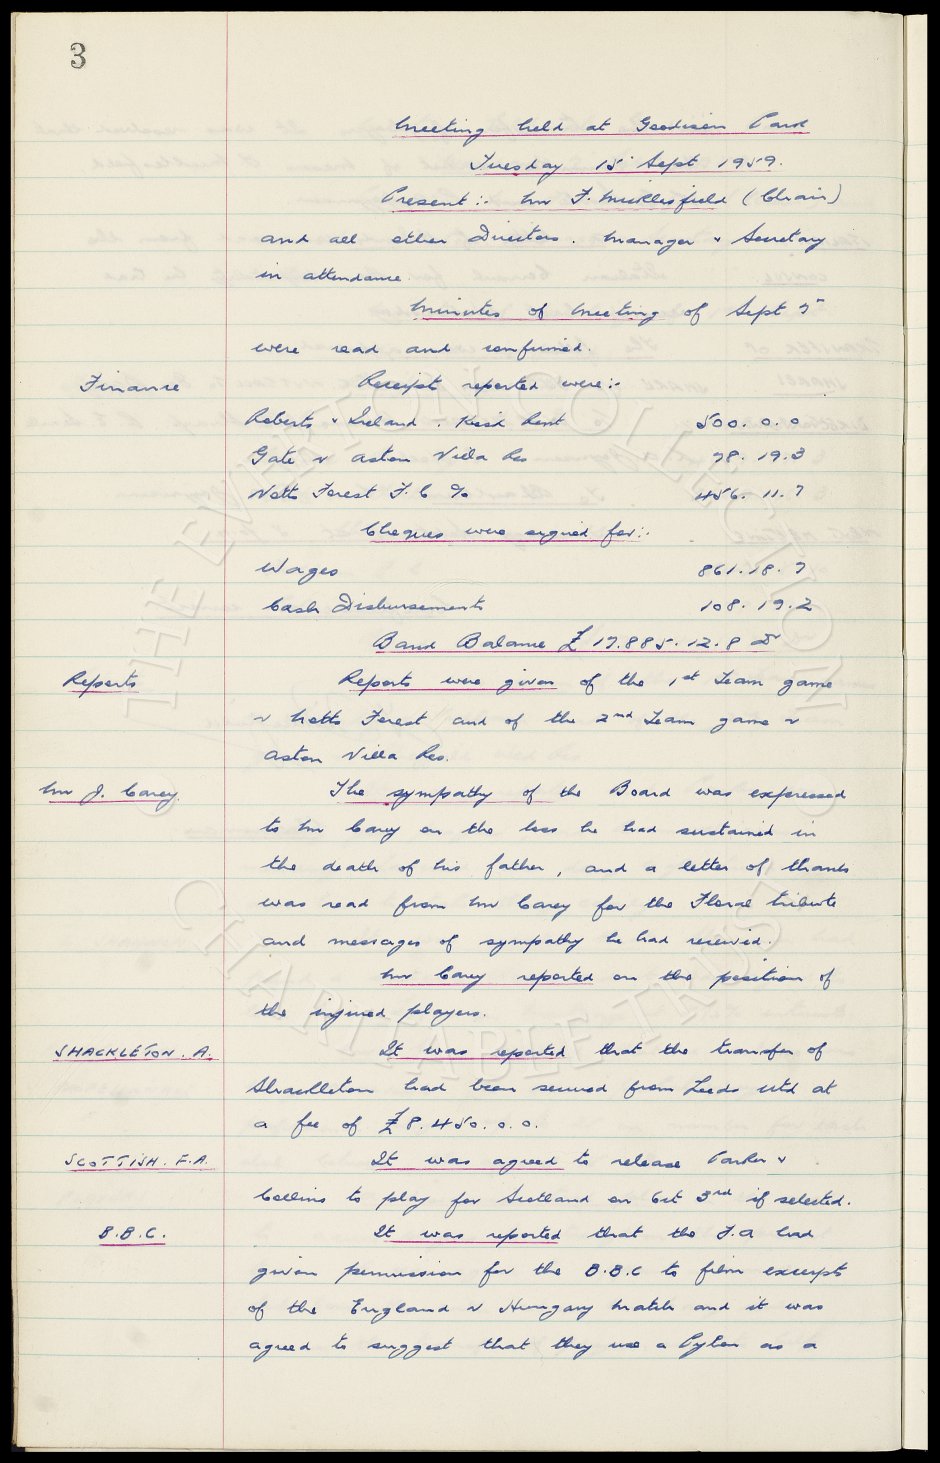 3
Meeting held at Goodison Park
Tuesday 15 Sept 1959.
Present :- Mr F. Micklesfield (Chair)
and all other Directors. Manager & Secretary
in attendance.
Minutes of Meeting of Sept
were read and confirmed.
Finance Receipts reported were :-
Roberts & Ireland. Rent 500. 0. 0
Gate v Aston Villa Res 78. 19. 3
Notts Forest F.C % 456. 11. 7
Cheques were signed for :-
Wages 861. 18. 7
Cash Disbursements 108. 19. 2
Bank Balance £ 17.885. 12. 8
Reports Reports were given of the 1st Team game
v Notts Forest and of the 2nd Team game v
Aston Villa Res.
Mr J. Carey. The sympathy of the Board was expressed
to Mr Carey on the loss he had sustained in
the death of his father, and a letter of thanks
was read from Mr Carey for the Floral tribute
and messages of sympathy he had received.
Mr Carey reported on the position of
the injured players.
SHACKLETON. A. It was reported that the transfer of
Shackleton had been secured from Leeds Utd at
a fee of £8.450. 0. 0.
SCOTTISH. F.A. It was agreed to release Parker &
Collins to play for Scotland on Oct 3rd if selected.
B.B.C. It was reported that the F.A had
given permission for the B.B.C to film excerpts
of the England v Hungary Match and it was
agreed to suggest that they use a Pylon as a
THE EVERTON COLLECTION CHARITABLE TRUST